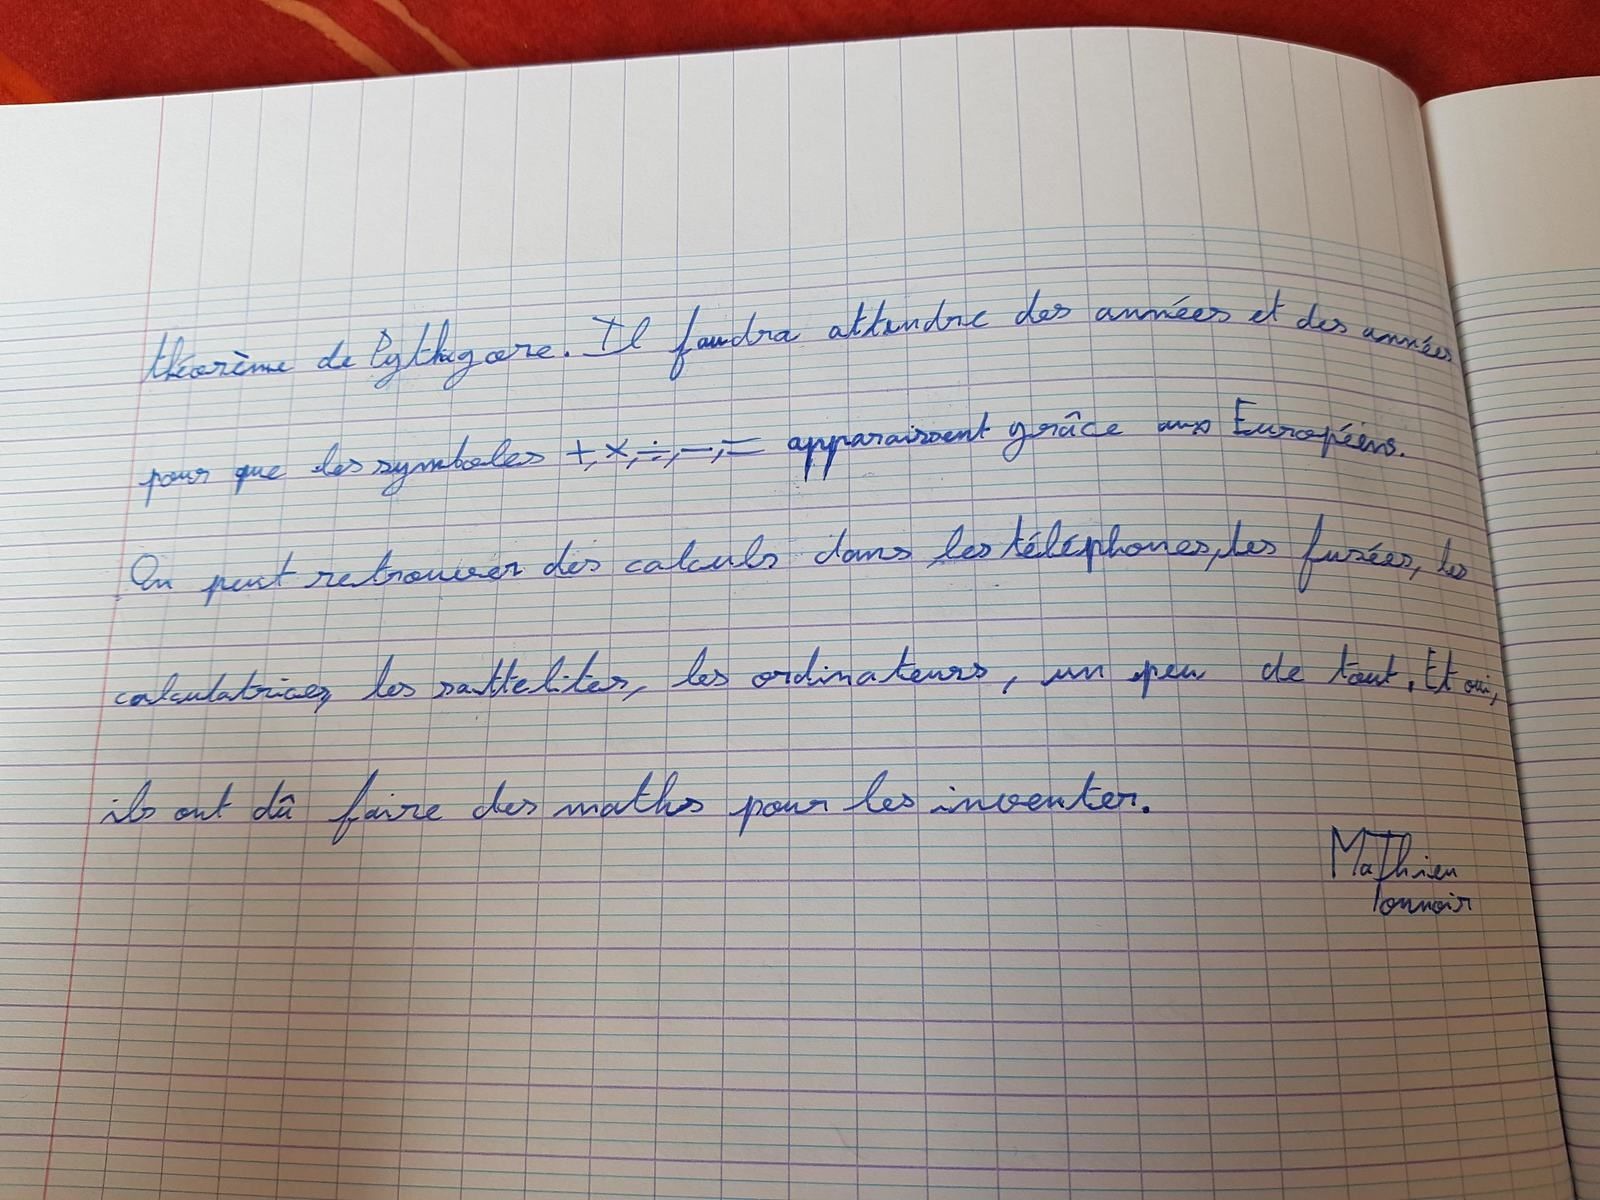 théorème de Pythagore. Il faudra attendre des années et des années
pour que les symboles +,×,÷,-,= apparaissent grâce aux Européens.
On peut retrouver des calculs dans les téléphones, les fusées, les
calculatrices, les sattelites, les ordinateurs, un peu de tout. Et oui,
ils ont dû faire des maths pour les inventer.
MaThieu